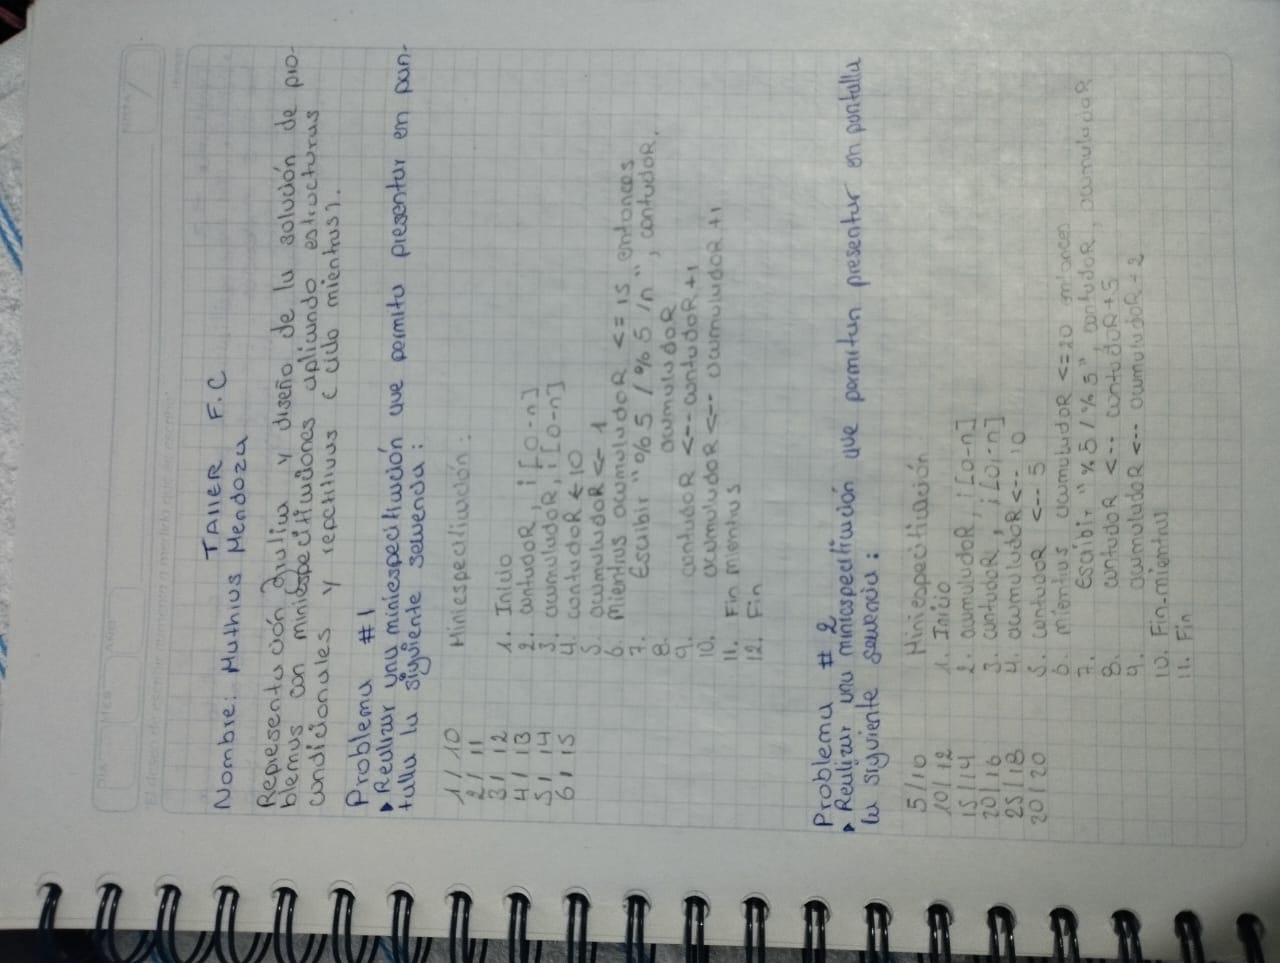 TAllER F.C
Nombre: Mathias Mendoza
Representación gráfica y diseño de la solución de pro-
blemas con miniespecificaciones aplicando estructuras
condicionales y repetitivas ( ciclo mientras).
Problema #1
Realizar una miniespecificación que permita presentar en pan-
talla la siguiente secuencia:
1 / 10
2 / 11
3 / 12
4 / 13
5 / 14
6 / 15
Miniespecificación:
1. Inicio
2. contadoR, ; [0-n]
3. acumuladoR, ; [0-n]
4. contadoR ← 10
5. acumuladoR ← 1
6. Mientras acumuladoR <= 15 entonces
7. Escibir "%5 / %5 /n", contadoR,
8. acumuladoR
9. contadoR <-- contadoR +1
10. acumuladoR <-- acumuladoR +1
11. Fin mientras
12. Fin
Problema # 2
Realizar una miniespecificación que permitan presentar en pantalla
la siguiente secuencia:
5 / 10
10 / 12
15 / 14
20 / 16
25 / 18
20 / 20
Miniespecificación
1. Inicio
2. acumuladoR, ; [0-n]
3. contadoR, ; [0,-n]
4. acumuladoR <-- 10
5. contadoR <-- 5
6. mientras acumuladoR <=20 entonces
7. Escibir "%5 / %5", contadoR, acumuladoR
8. contadoR <-- contadoR+5
9. acumuladoR <-- acumuladoR+2
10. Fin-mientras
11. Fin